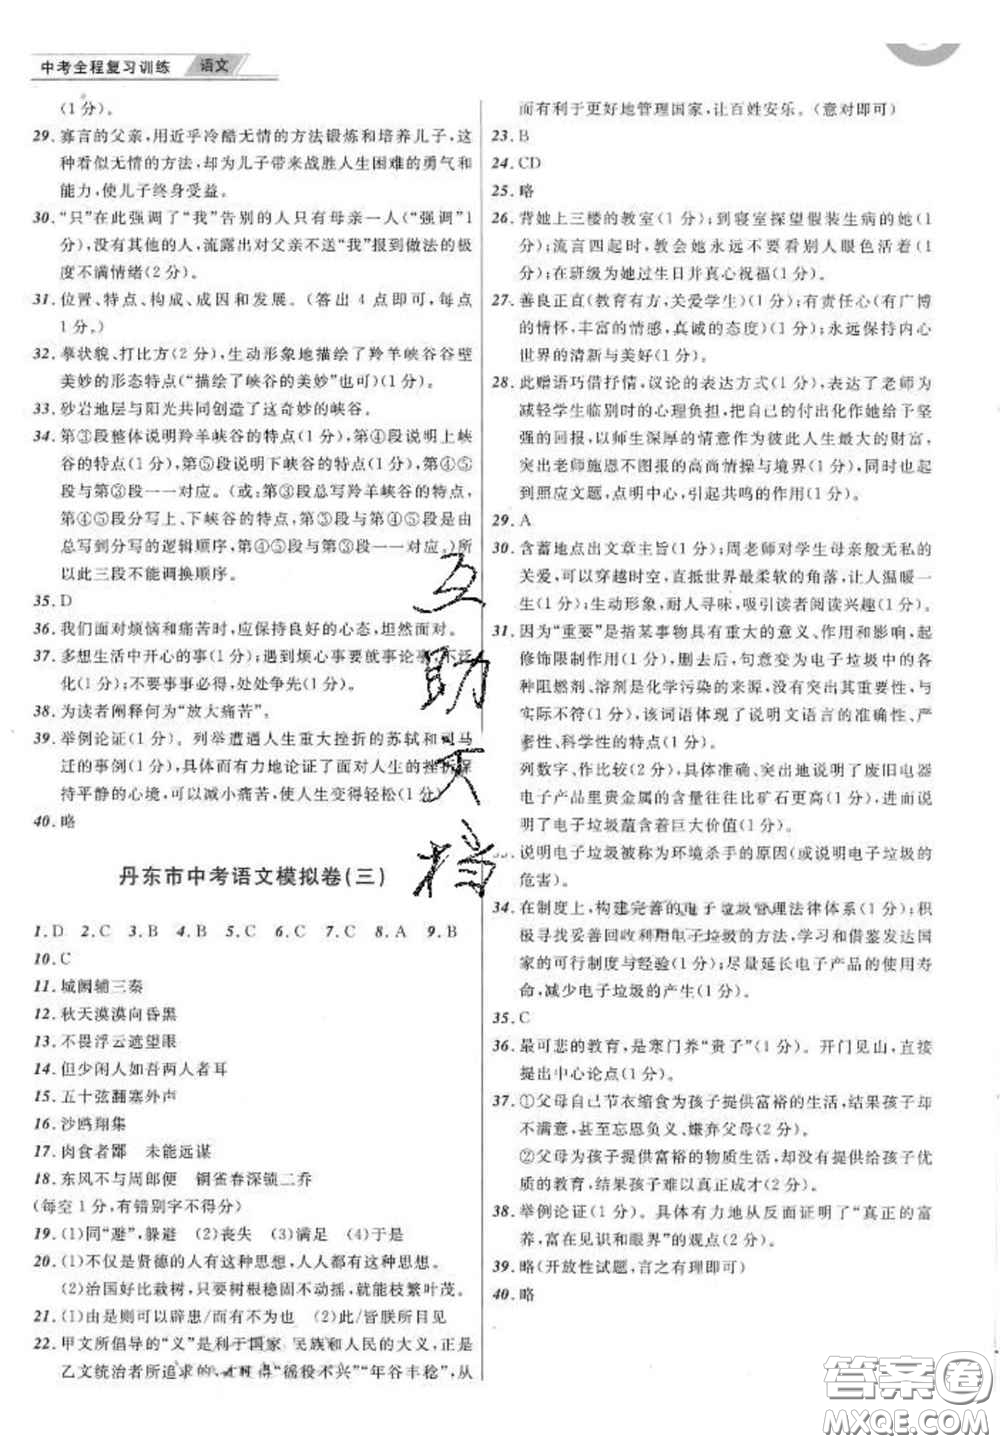 中考全程复习训练 语文
(1分)。
29. 寡言的父亲,用近乎冷酷无情的方法锻炼和培养儿子,这
种看似无情的方法,却为儿子带来战胜人生困难的勇气和
能力,使儿子终身受益。
30. “只”在此强调了“我”告别的人只有母亲一人(“强调”1
分),没有其他的人,流露出对父亲不送“我”报到做法的极
度不满情绪(2分)。
31. 位置、特点、构成、成因和发展。(答出4点即可,每点
1分。)
32. 摹状貌、打比方(2分),生动形象地描绘了羚羊峡谷谷壁
美妙的形态特点(“描绘了峡谷的美妙”也可)(1分)。
33. 砂岩地层与阳光共同创造了这奇妙的峡谷。
34. 第③段整体说明羚羊峡谷的特点(1分),第④段说明上峡
谷的特点(1分),第⑤段说明下峡谷的特点(1分),第④⑤
段与第③段一一对应。(或:第③段总写羚羊峡谷的特点,
第④⑤段分写上、下峡谷的特点,第③④⑤段的顺序是由
总写到分写的逻辑顺序,第④⑤段与第③段一一对应。)所
以此三段不能调换顺序。
35. D
36. 我们面对烦恼和痛苦时,应保持良好的心态,坦然面对。
37. 多想生活中开心的事(1分);遇到烦心事要就事论事,不泛
化(1分);不要事事必得,处处争先(1分)。
38. 为读者阐释何为“放大痛苦”。
39. 举例论证(1分)。列举遭遇人生重大挫折的苏轼和司马
迁的事例(1分),具体而有力地论证了面对人生的挫折保
持平静的心境,可以减小痛苦,使人生变得轻松(1分)
40. 略
丹东市中考语文模拟卷(三)
1. D 2. C 3. B 4. B 5. C 6. C 7. C 8. A 9. B
10. C
11. 城阙辅三秦
12. 秋天漠漠向昏黑
13. 不畏浮云遮望眼
14. 但少闲人如吾两人者耳
15. 五十弦翻塞外声
16. 沙鸥翔集
17. 肉食者鄙 未能远谋
18. 东风不与周郎便 铜雀春深锁二乔
(每空1分,有错别字不得分)
19. (1)同“避”,躲避 (2)丧失 (3)满足 (4)于是
20. (1)不仅是贤德的人有这种思想,人人都有这种思想。
(2)治国好比栽树,只要树根稳固不动摇,就能枝繁叶茂。
21. (1)由是则可以辟患/而有不为也 (2)此/皆朕所目见
22. 甲文所倡导的“义”是利于国家、民族和人民的大义,正是
乙文统治者所追求的,才取得“徭役不兴”“年谷丰稔”,从
而有利于更好地管理国家,让百姓安乐。(意对即可)
23. B
24. CD
25. 略
26. 背她上三楼的教室(1分);到寝室探望假装生病的她(1
分);流言四起时,教会她永远不要看别人眼色活着(1
分);在班级为她过生日并真心祝福(1分)。
27. 善良正直(教育有方,关爱学生)(1分);有责任心(有广博
的情怀,丰富的情感,真诚的态度)(1分);永远保持内心
世界的清新与美好(1分)。
28. 此赠语巧借抒情,议论的表达方式(1分),表达了老师为
减轻学生临别时的心理负担,把自己的付出化作她给与坚
强的回报,以师生深厚的情意作为彼此人生最大的财富,
突出老师施恩不图报的高尚情操与境界(1分),同时也起
到照应文题,点明中心,引起共鸣的作用(1分)。
29. A
30. 含蓄地点出文章主旨(1分);周老师对学生母亲般无私的
关爱,可以穿越时空,直抵世界最柔软的角落,让人温暖一
生(1分);生动形象,耐人寻味,吸引读者阅读兴趣(1分)。
31. 因为“重要”是指某事物具有重大的意义、作用和影响,起
修饰限制作用(1分),删去后,句意变为电子垃圾中的各
种阻燃剂、溶剂是化学污染的来源,没有突出程度,与
实际不符(1分),该词语体现了说明文语言的准确性、严
密性、科学性的特点(1分)。
列数字、作比较(2分),具体准确、突出地说明了废旧电器
电子产品里贵金属的含量往往比矿石更多(1分),进而说
明了电子垃圾蕴含着巨大价值(1分)。
说明电子垃圾被称为环境杀手的原因(或电子垃圾的
危害)。
34. 在制度上,构建完善的电子垃圾管理法律体系(1分);积
极寻找妥善回收利用电子垃圾的方法,学习和借鉴发达国
家的可行制度与经验(1分);尽量延长电子产品的使用寿
命,减少电子垃圾的产生(1分)。
35. C
36. 最可悲的教育,是寒门养“贵子”(1分)。开门见山,直接
提出中心论点(1分)。
37. ①父母自己节衣缩食为孩子提供富裕的生活,结果孩子却
不满意,甚至忘恩负义、嫌弃父母(2分)。
②父母为孩子提供富裕的物质生活,却没有提供给孩子优
质的教育,结果孩子难以真正成才(2分)。
38. 举例论证(1分)。具体有力地从反面证明了“真正的富
养,富在见识和眼界”的观点(2分)。
39. 略(开放性试题,言之有理即可)
40. 略
互助文档
答案圈
MXQE.COM